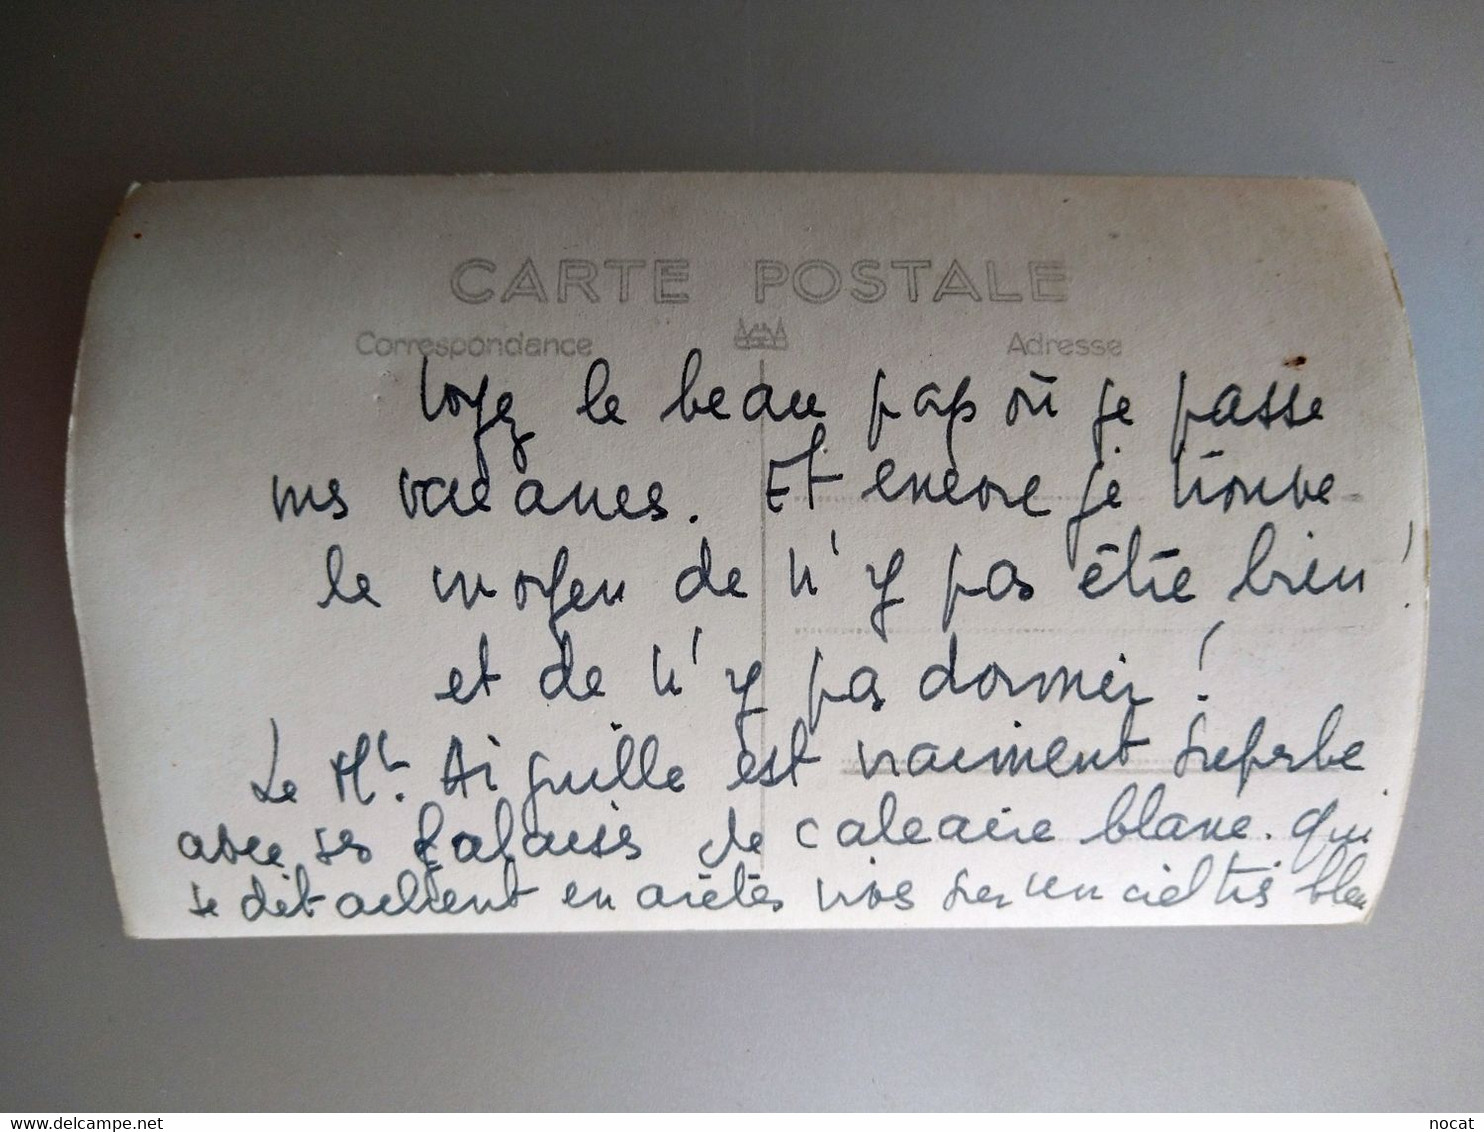 CARTE POSTALE
Correspondance Adresse
Voyez le beau pays où je passe
mes vacances. Et encore je trouve
le moyen de n'y pas être bien !
et de n'y pas dormir !
Le Mt. Aiguille est vraiment superbe
avec ses falaises de calcaire blanc. qui
se détachent en arêtes vives sur un ciel très bleu
delcampe.net
nocat